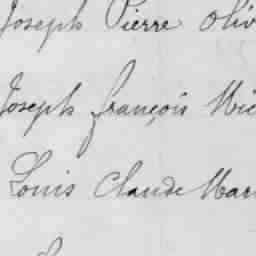 Joseph Pierre Oliv
Joseph françois Mic
Louis Claude Mar